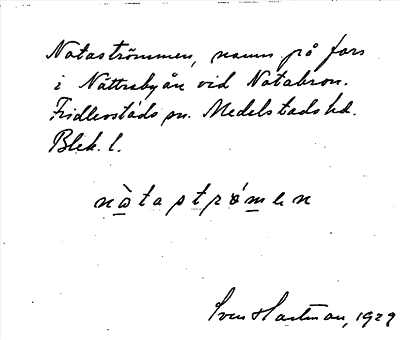 Notaströmmen, namn på fors
i Nättrabyån vid Notabron.
Fridlevstads sn. Medelstads hd.
Blek. l.
nὰtastrǿmen
Sven Hartman, 1929